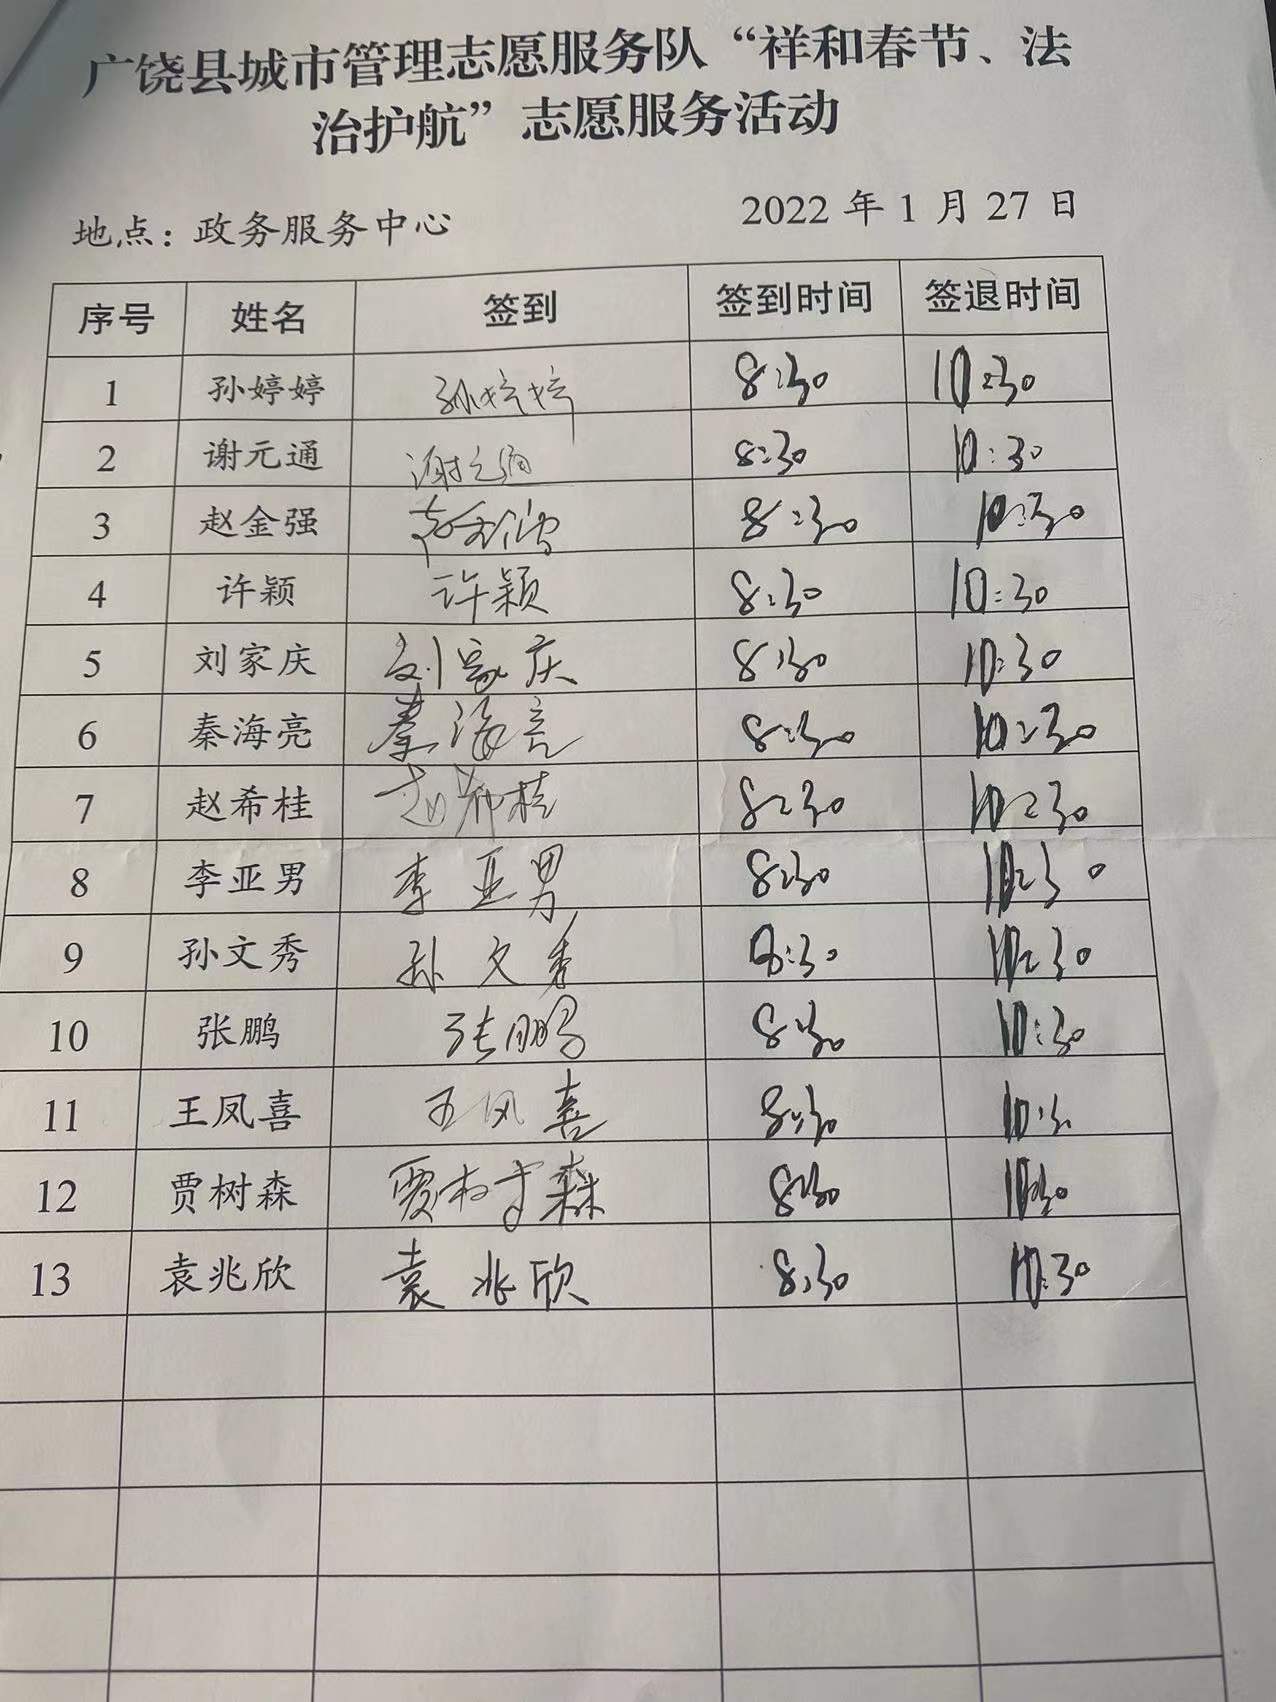 广饶县城市管理志愿服务队“祥和春节、法
治护航”志愿服务活动
地点：政务服务中心 2022 年 1 月 27 日
序号 姓名 签到 签到时间 签退时间
1 孙婷婷 孙婷婷 8:30 10:30
2 谢元通 谢元通 8:30 10:30
3 赵金强 赵金强 8:30 10:30
4 许颖 许颖 8:30 10:30
5 刘家庆 刘家庆 8:30 10:30
6 秦海亮 秦海亮 8:30 10:30
7 赵希桂 赵希桂 8:30 10:30
8 李亚男 李亚男 8:30 10:30
9 孙文秀 孙文秀 8:30 10:30
10 张鹏 张鹏 8:30 10:30
11 王凤喜 王凤喜 8:30 10:30
12 贾树森 贾树森 8:30 10:30
13 袁兆欣 袁兆欣 8:30 10:30